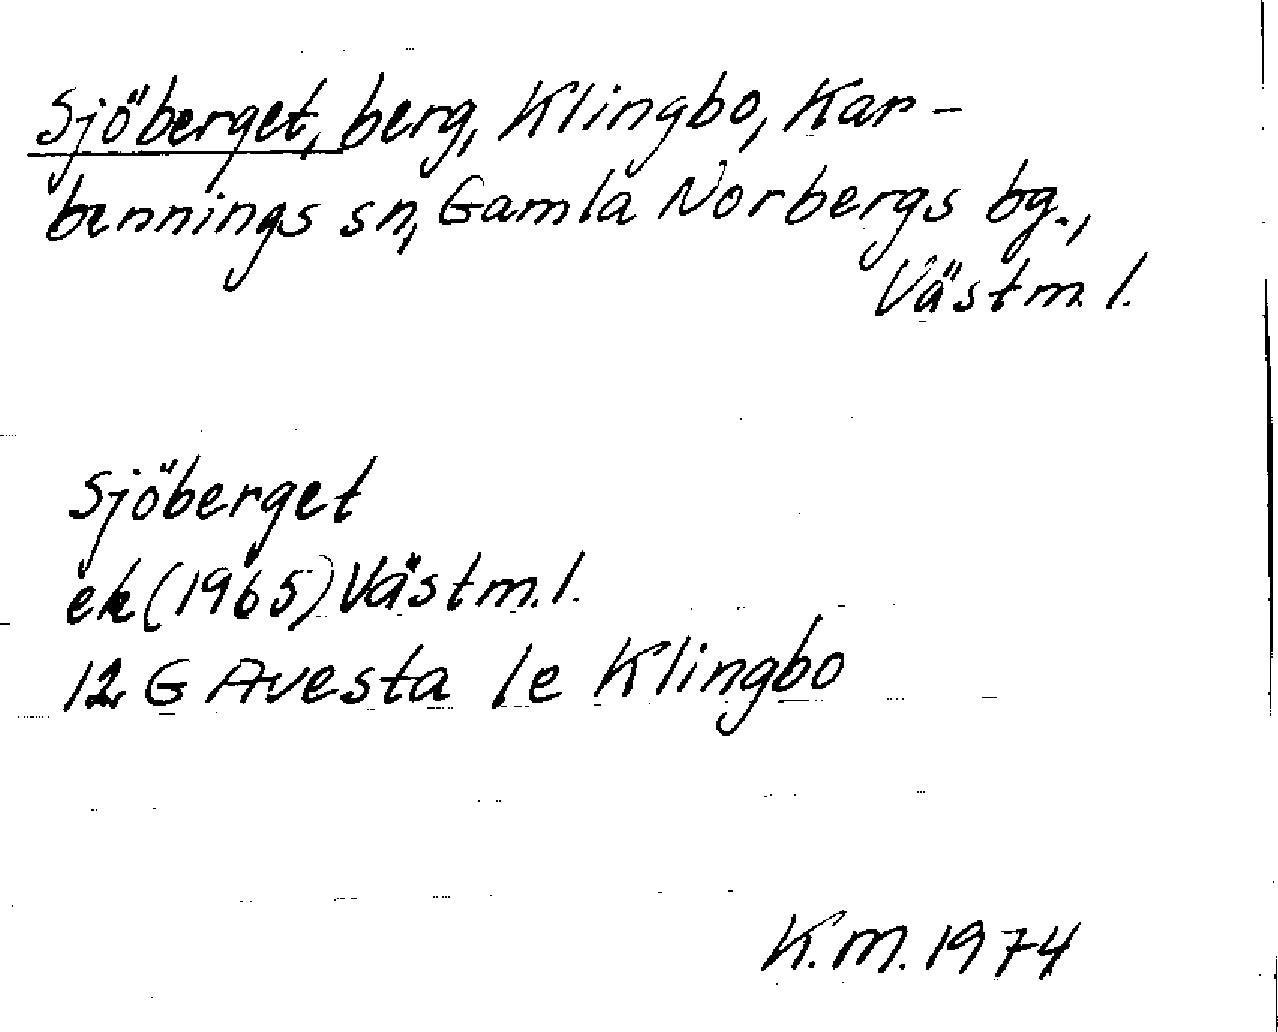 Sjöberget, berg, Klingbo, Kar-
bennings sn, Gamla Norbergs bg.,
Västm. l.
Sjöberget
ek (1965) Västm. l.
12 G Avesta 1e Klingbo
K.M. 1974